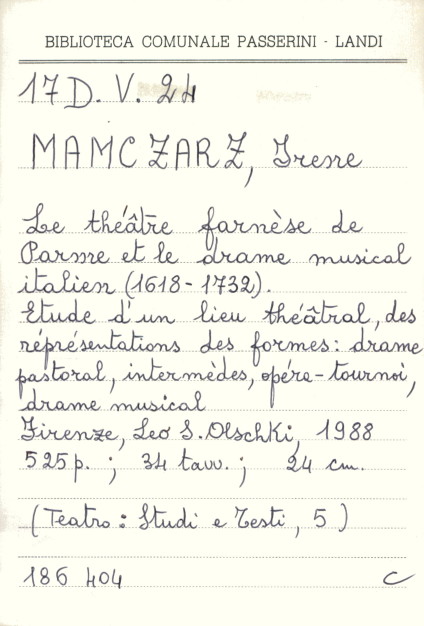 BIBLIOTECA COMUNALE PASSERINI - LANDI
17 D. V. 24
MAMCZARZ, Irene
Le théâtre farnèse de
Parme et le drame musical
italien (1618-1732).
Etude d'un lieu théâtral, des
réprésentations des formes: drame
pastoral, intermèdes, opéra-tournoi,
drame musical
Firenze, Leo S. Olschki, 1988
525 p. ; 34 tavv. ; 24 cm.
(Teatro: Studi e Testi, 5)
186 404 C